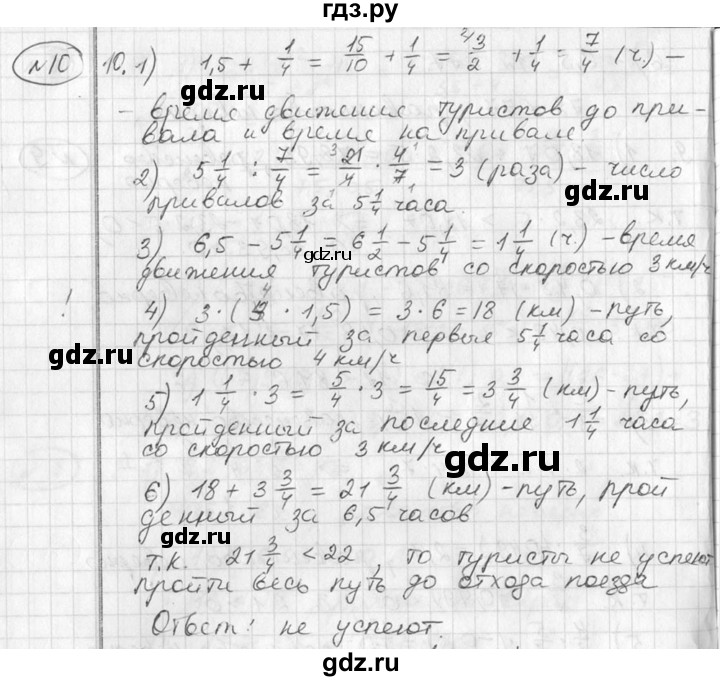 гдз.ру
№10 10. 1) 1,5 + 1/4 = 15/10 + 1/4 = 3/2 + 1/4 = 7/4 (ч.) –
– время движения туристов до при-
вала и время на привале
2) 5 1/4 : 7/4 = 21/4 · 4/7 = 3 (раза) – число
привалов за 5 1/4 часа.
3) 6,5 – 5 1/4 = 6 1/2 – 5 1/4 = 1 1/4 (ч.) – время
движения туристов со скоростью 3 км/ч
! 4) 3 · (4 · 1,5) = 3 · 6 = 18 (км) – путь,
пройденный за первые 5 1/4 часа со
скоростью 4 км/ч
5) 1 1/4 · 3 = 5/4 · 3 = 15/4 = 3 3/4 (км) – путь,
пройденный за последние 1 1/4 часа
со скоростью 3 км/ч
6) 18 + 3 3/4 = 21 3/4 (км) – путь, прой
денный за 6,5 часов
т.к. 21 3/4 < 22, то туристы не успеют
пройти весь путь до отхода поезда
Ответ: не успеют.
gdz.ru
gdz.ru
gdz.ru
gdz.ru
gdz.ru
gdz.ru
gdz.ru
gdz.ru
gdz.ru
gdz.ru